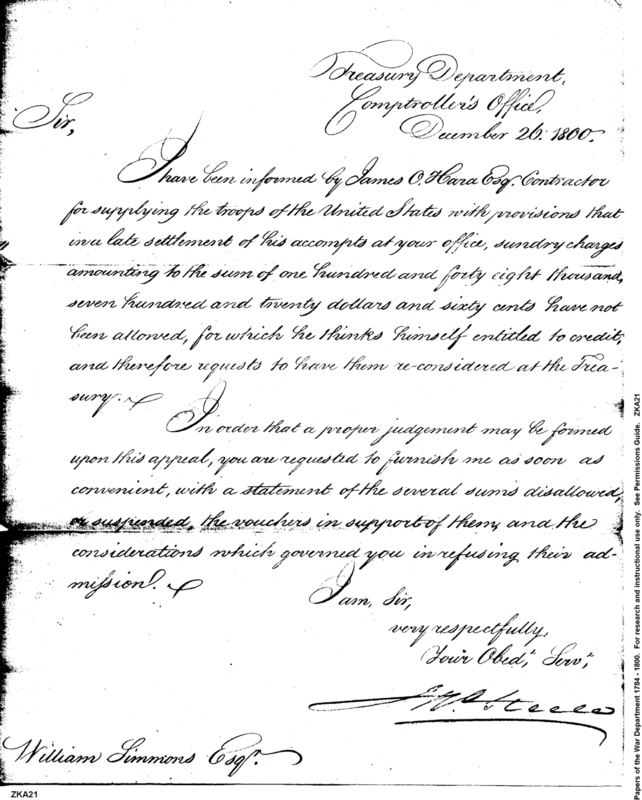 Treasury Department,
Comptroller's Office,
December 26. 1800.
Sir,
I have been informed by James O. Hara Esqr. Contractor
for supplying the troops of the United States with provisions that
in a late settlement of his accompts at your office, sundry charges
amounting to the sum of one hundred and forty eight thousand,
seven hundred and twenty dollars and sixty cents have not
been allowed, for which he thinks himself entitled to credit,
and therefore requests to have them re-considered at the Trea-
sury.
In order that a proper judgement may be formed
upon this appeal, you are requested to furnish me as soon as
convenient, with a statement of the several sums disallowed,
or suspended, the vouchers in support of them, and the
considerations which governed you in refusing their ad-
mission.
I am, Sir,
very respectfully,
Your Obedt. Servt.
Jno. Steele
William Simmons Esqr.
ZKA21
Papers of the War Department 1784 - 1800. For research and instructional use only. See Permissions Guide. ZKA21